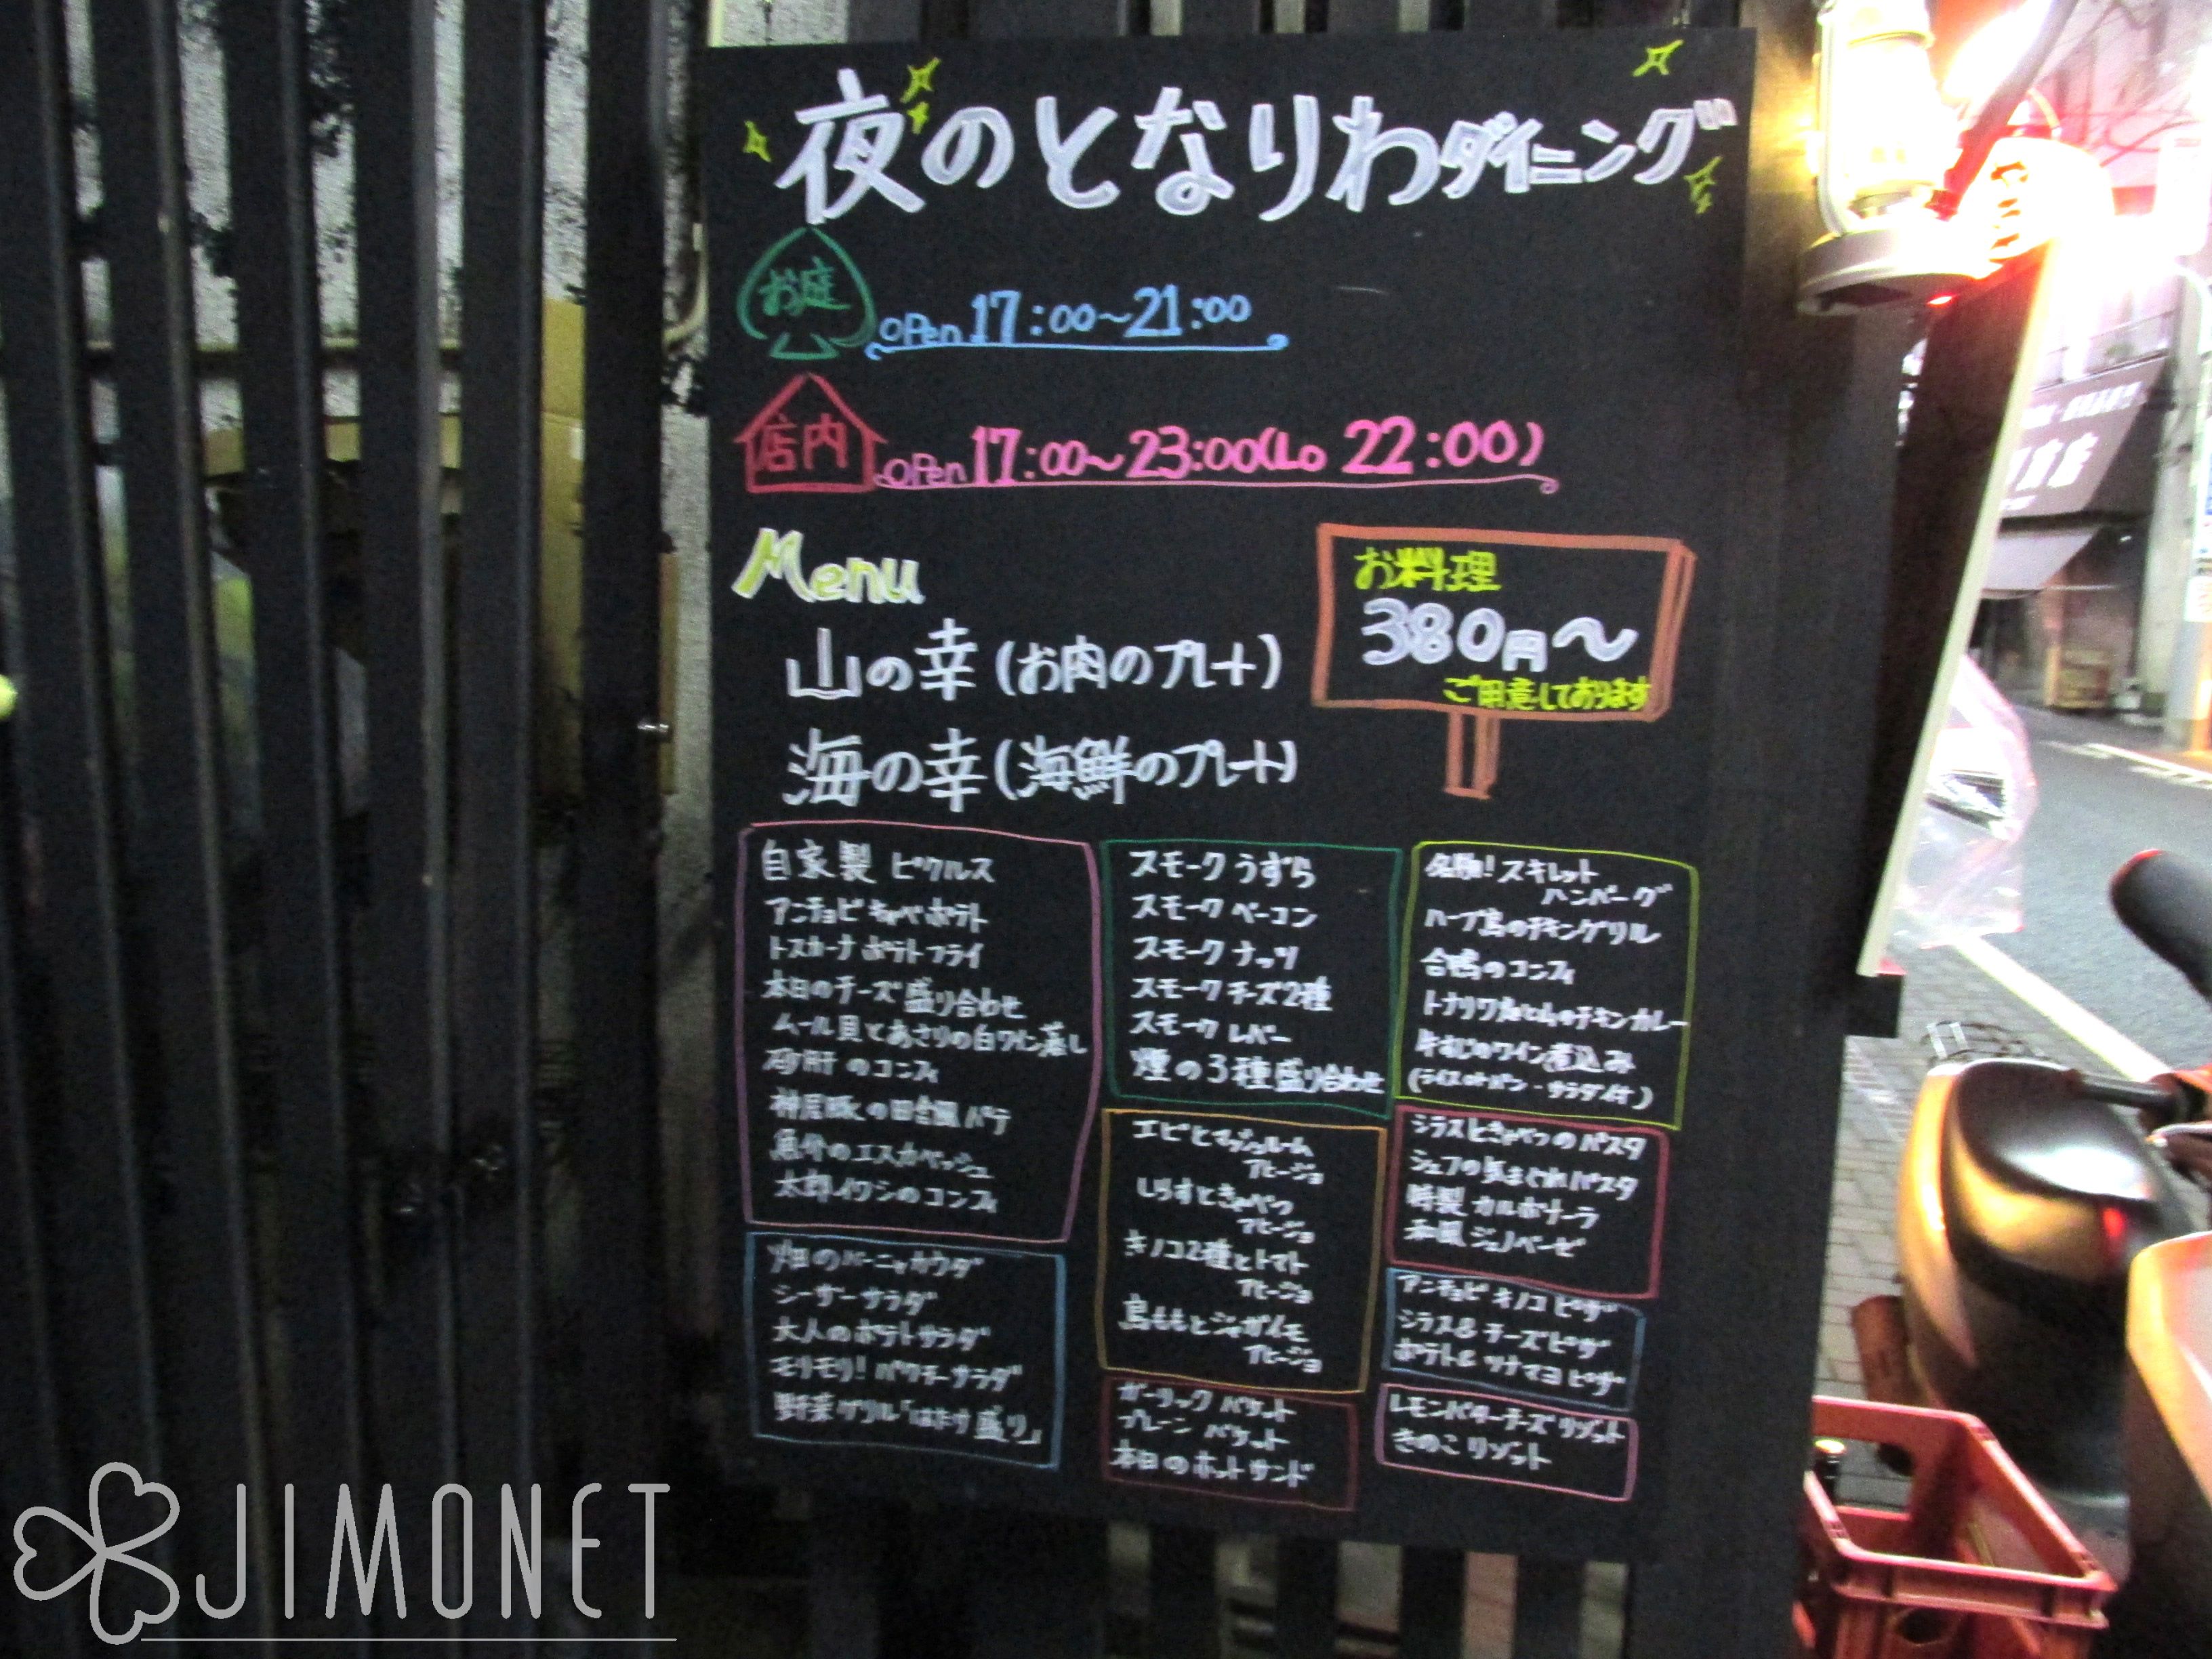 夜のとなりわダイニング
お庭
open 17:00～21:00
店内
open 17:00～23:00(Lo 22:00)
Menu
お料理
380円～
ご用意しております
山の幸(お肉のプレート)
海の幸(海鮮のプレート)
自家製 ピクルス
アンチョビキャベポテト
トスカーナポテトフライ
本日のチーズ盛り合わせ
ムール貝とあさりの白ワイン蒸し
砂肝のコンフィ
豚の田舎風パテ
のエスカベッシュ
イワシのコンフィ
畑のバーニャカウダ
シーザーサラダ
大人のポテトサラダ
モリモリ!パクチーサラダ
野菜グリル「はたけ盛り」
スモークうずら
スモークベーコン
スモークナッツ
スモークチーズ2種
スモークレバー
燻の3種盛り合わせ
エビとマッシュルーム
アヒージョ
しらすときゃべつ
アヒージョ
きノコ2種とトマト
アヒージョ
鳥ももとジャガイモ
アヒージョ
ガーリックバケット
プレーンバケット
本日のホットサンド
名物!スキレット
ハンバーグ
ハーブ鳥のチキングリル
合鴨のコンフィ
トナリワ海と山のチキンカレー
牛すじのワイン煮込み
(ライスorパン・サラダ付)
シラスときゃべつのパスタ
シェフの気まぐれパスタ
特製カルボナーラ
和風ジェノベーゼ
アンチョビキノコピザ
シラス&チーズピザ
ポテト&ツナマヨピザ
レモンバターチーズリゾット
きのこリゾット
JIMONET